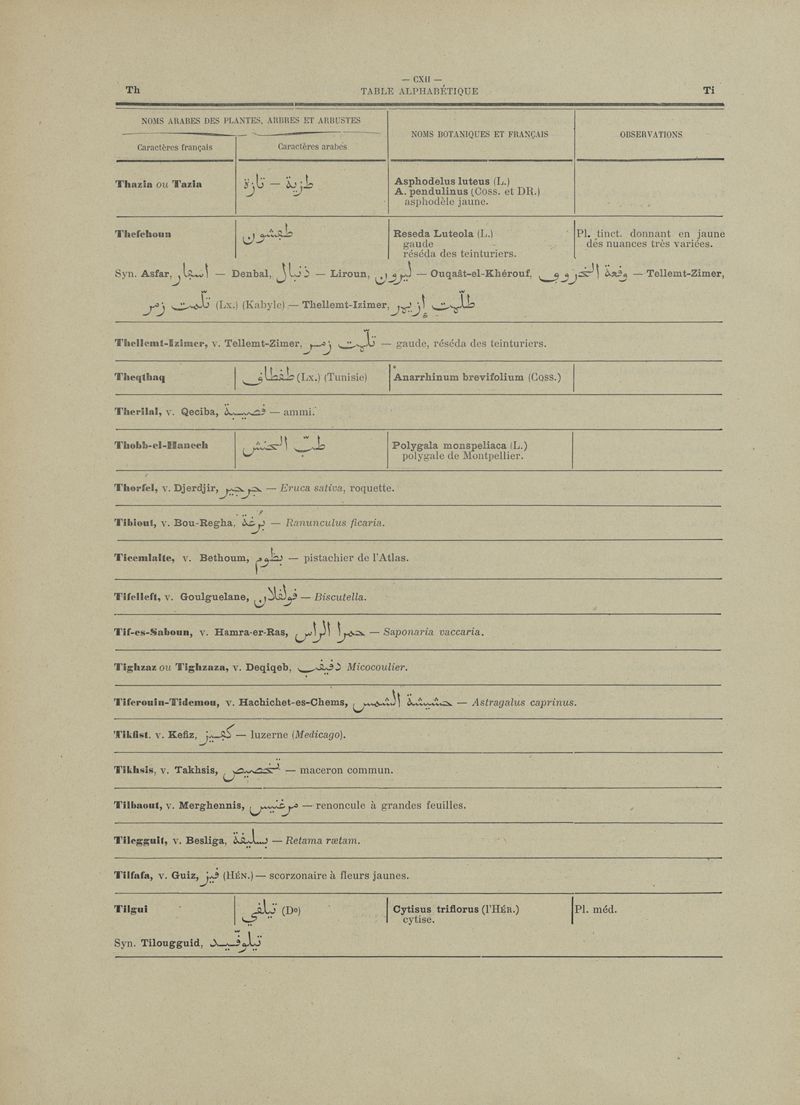 — CXII —
Th TABLE ALPHABÉTIQUE Ti
NOMS ARABES DES PLANTES, ARBRES ET ARBUSTES
NOMS BOTANIQUES ET FRANÇAIS
OBSERVATIONS
Caractères français Caractères arabes
Thazia ou Tazia
Asphodelus luteus (L.)
A. pendulinus (Coss. et DR.)
asphodèle jaune.
Thefchoun
Reseda Luteola (L.)
gaude
réséda des teinturiers.
Pl. tinct. donnant en jaune
des nuances très variées.
Syn. Asfar, — Denbal, — Liroun, — Ouqaât-el-Khérouf, — Tellemt-Zimer,
(Lx.) (Kabyle) — Thellemt-Izimer,
Thellemt-Izimer, v. Tellemt-Zimer, — gaude, réséda des teinturiers.
Theqthaq (Lx.) (Tunisie) Anarrhinum brevifolium (Coss.)
Therilal, v. Qeciba, — ammi.
Thobb-el-Hanech طب الحنش Polygala monspeliaca (L.)
polygale de Montpellier.
Thorfel, v. Djerdjir, جرجير — Eruca sativa, roquette.
Tibiout, v. Bou-Regha, — Ranunculus ficaria.
Ticemlalte, v. Bethoum, بطوم — pistachier de l'Atlas.
Tifelleft, v. Goulguelane, — Biscutella.
Tif-es-Saboun, v. Hamra-er-Ras, حمرا الراس — Saponaria vaccaria.
Tighzaz ou Tighzaza, v. Deqiqeb, Micocoulier.
Tiferouin-Tidemou, v. Hachichet-es-Chems, حشيشة الشمس — Astragalus caprinus.
Tikfist. v. Kefiz, — luzerne (Medicago).
Tikhsis, v. Takhsis, — maceron commun.
Tilbaout, v. Merghennis, — renoncule à grandes feuilles.
Tilegguit, v. Besliga, — Retama rætam.
Tilfafa, v. Guiz, (HÉN.) — scorzonaire à fleurs jaunes.
Tilgui (Do) Cytisus triflorus (l'HÉR.) Pl. méd.
cytise.
Syn. Tilougguid,